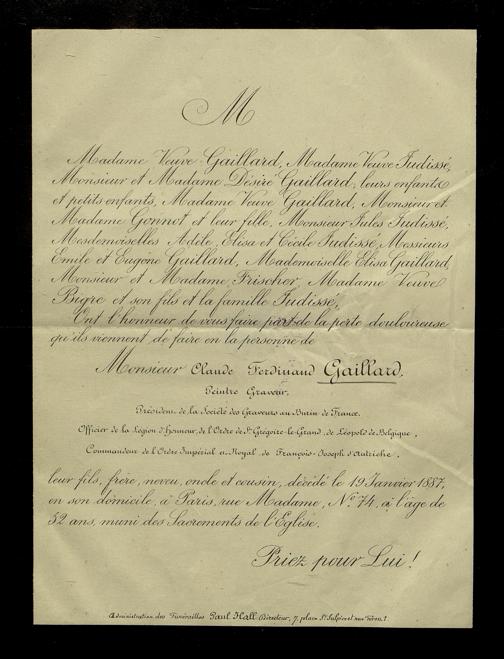 M
Madame Veuve Gaillard, Madame Veuve Judissé,
Monsieur et Madame Désiré Gaillard, leurs enfants
et petits enfants, Madame Veuve Gaillard, Monsieur et
Madame Gonnot et leur fille, Monsieur Jules Judissé,
Mesdemoiselles Adèle, Elisa et Cécile Judissé, Messieurs
Emile et Eugène Gaillard, Mademoiselle Elisa Gaillard,
Monsieur et Madame Frischer, Madame Veuve
Bugre et son fils et la famille Judissé,
Ont l'honneur de vous faire part de la perte douloureuse
qu'ils viennent de faire en la personne de
Monsieur Claude Ferdinand Gaillard.
Peintre Graveur.
Président de la Société des Graveurs au Burin de France.
Officier de la Légion d'honneur, de l'Ordre de St Grégoire-le-Grand, de Léopold de Belgique,
Commandeur de l'Ordre Impérial et Royal de François-Joseph d'Autriche,
leur fils, frère, neveu, oncle et cousin, décédé le 19 Janvier 1887,
en son domicile, à Paris, rue Madame, No 74, à l'âge de
52 ans, muni des Sacrements de l'Eglise.
Priez pour Lui!
Administration des Funérailles Paul Hall Directeur, 7, place St Sulpice et rue Féron, 1